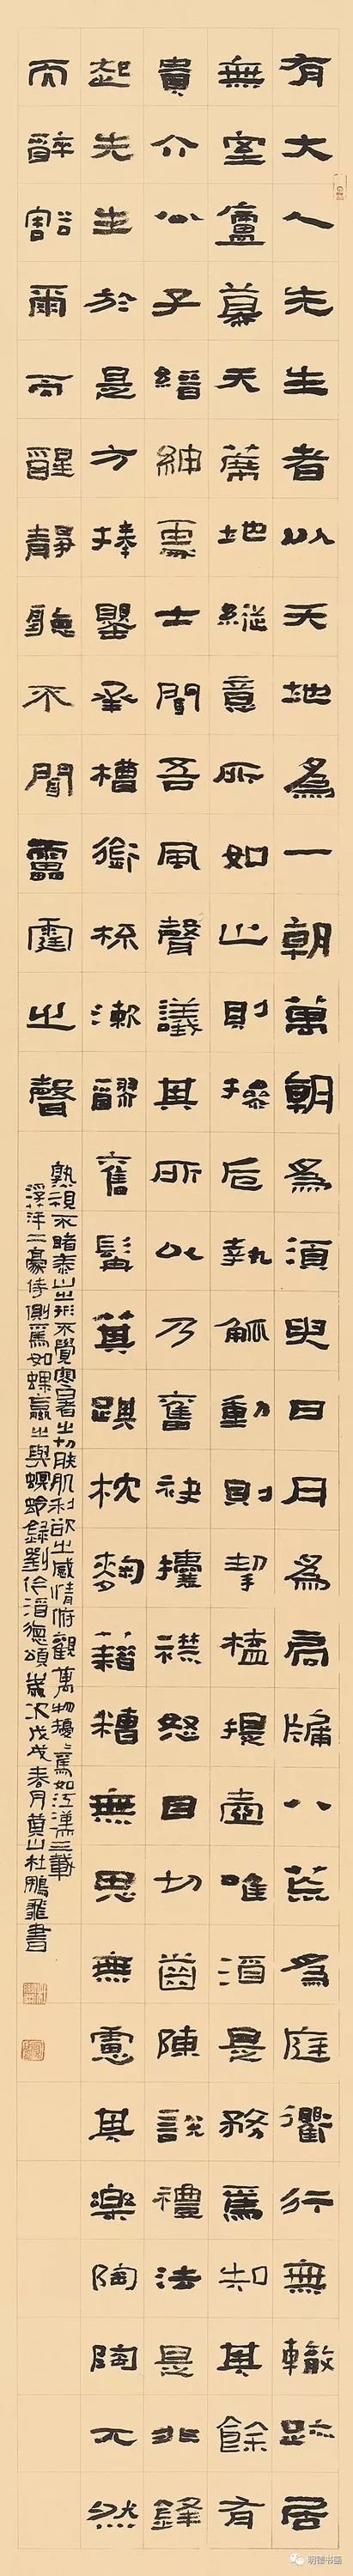 有大人先生者以天地為一朝萬朝為須臾日月為扃牖八荒為庭衢行無轍跡居
無室廬幕天席地縱意所如止則操卮執觚動則挈榼提壺唯酒是務焉知其餘有
貴介公子縉紳處士聞吾風聲議其所以乃奮袂攘襟怒目切齒陳說禮法是非鋒
起先生於是方捧罌承槽銜杯漱醪奮髯箕踞枕麴藉糟無思無慮其樂陶陶兀然
而醉豁爾而醒靜聽不聞雷霆之聲
熟視不睹泰山之形不覺寒暑之切肤肌利欲之感情俯觀萬物擾〻焉如江漢三載
浮萍二豪侍側焉如蜾蠃之與螟蛉錄劉伶酒德頌歲次戊戌春月黄山杜鵬飛書
明德书画